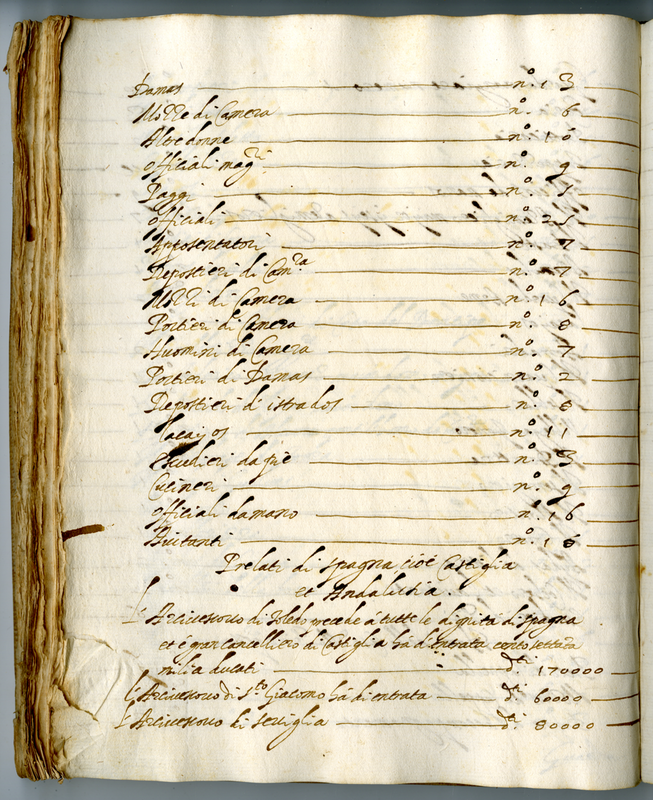 Damas n.º 13
Mozze di Camera n.º 6
Altre donne n.º 16
Officiali mag.ri n.º 9
Paggi n.º
Officiali n.º
Aposentatori n.º 7
Repostieri di Cam.ra n.º 7
Mozzi di Camera n.º 16
Portieri di Camera n.º 8
Huomini di Camera n.º 7
Portieri di Damas n.º 2
Repostieri d'istrados n.º
lacayos n.º 11
Escudieri da piè n.º 3
Cucineri n.º 9
Officiali da mano n.º 16
Aiutanti n.º 16
Prelati di spagna cioè Castiglia
et Andalutia.
L'Arcivescovo di Toledo precede à tutte le dignità di spagna
et è gran cancelliero di Castiglia hà d'entrata cento settãta
milia ducati d.ti 170000
l'Arcivescovo di S.to Giacomo hà di entrata d.ti 60000
l'Arcivescovo di Seviglia d.ti 80000